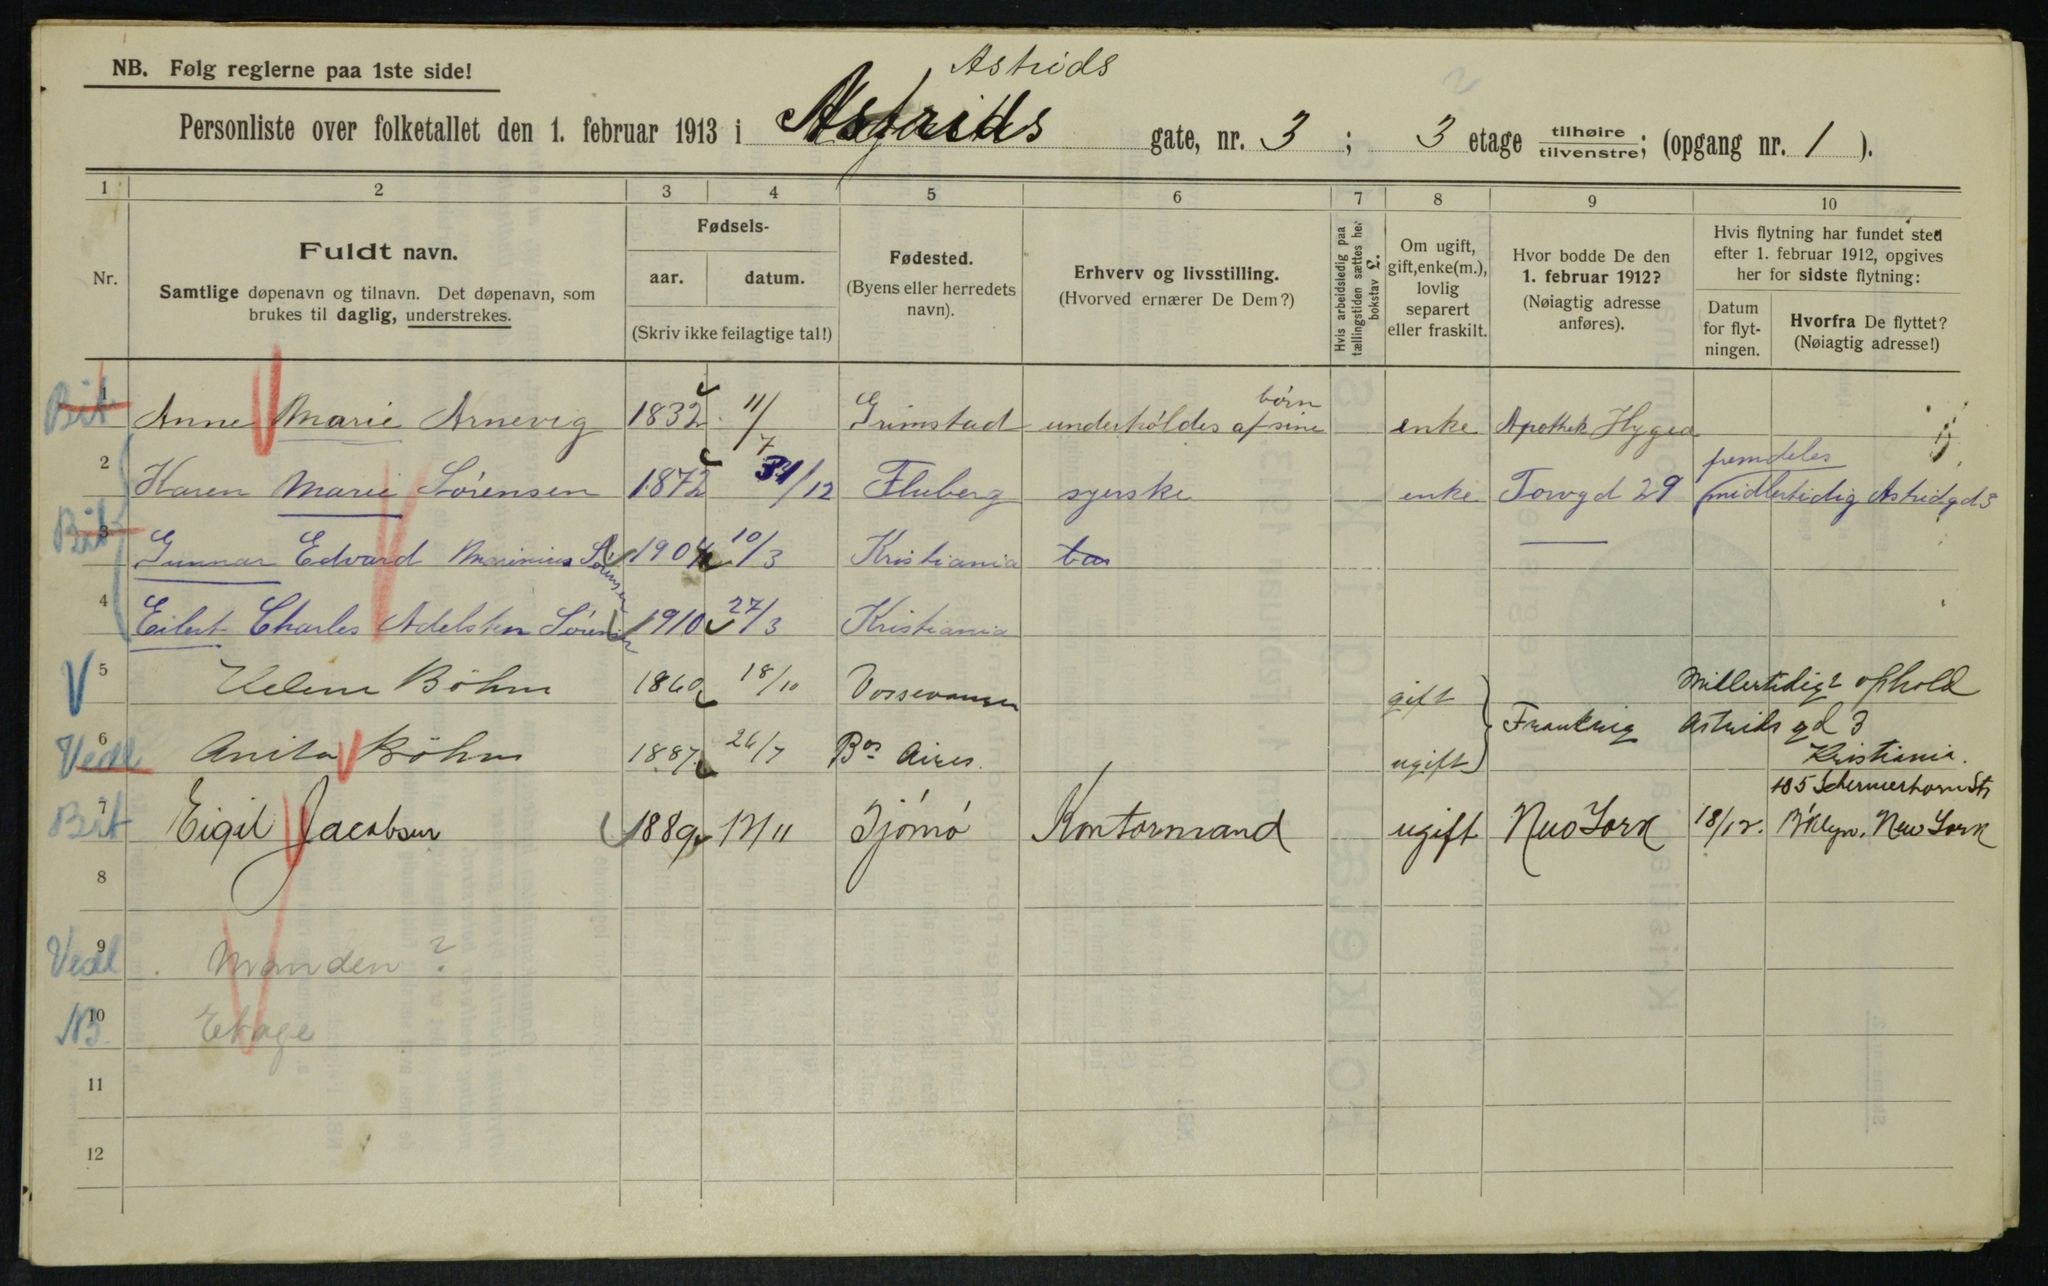 NB. Følg reglerne paa 1ste side!
Astrids
Personliste over folketallet den 1. februar 1913 i Astrids gate, nr. 3 ; 3 etage tilhøire/tilvenstre; (opgang nr. 1 ).
1 2 3 4 5 6 7 8 9 10
Nr.
Fuldt navn.
Samtlige døpenavn og tilnavn. Det døpenavn, som
brukes til daglig, understrekes.
Fødsels-
aar. datum.
(Skriv ikke feilagtige tal!)
Fødested.
(Byens eller herredets
navn).
Erhverv og livsstilling.
(Hvorved ernærer De Dem?)
Hvis arbeidsledig paa
tællingstiden sættes her
bokstav L.
Om ugift,
gift, enke(m.),
lovlig
separert
eller fraskilt.
Hvor bodde De den
1. februar 1912?
(Nøiagtig adresse
anføres).
Hvis flytning har fundet sted
efter 1. februar 1912, opgives
her for sidste flytning:
Datum
for flyt-
ningen.
Hvorfra De flyttet?
(Nøiagtig adresse!)
børn
Bit 1 Anne Marie Arnevig 1832 11/7 Grimstad underhóldes af sine enke Apothek Hygea
fremdeles
2 Karen Marie Sørensen 1872 31/12 Fluberg syerske enke Torvgd 29 midlertidig Astridgd 3
Bit 3 Gunnar Edvard Marinius Sørensen 1904 10/3 Kristiania
4 Eilert Charles Adelsten Sørensen 1910 27/3 Kristiania
V 5 Helene Böhm 1860 18/10 Vossevangen gift Millertidigt ophold
Frankrig Astrids gd 3
Vedl 6 Anita Böhm 1887 26/7 Bos Aires. ugift Kristiania.
105 Schermerhorn St
Bit 7 Eigil Jacobsen 1889 12/11 Tjómó Kontormand ugift New York 18/12. B'klyn. New York
8
Vedl 9 Manden ?
NB. 10 Etage
11
12